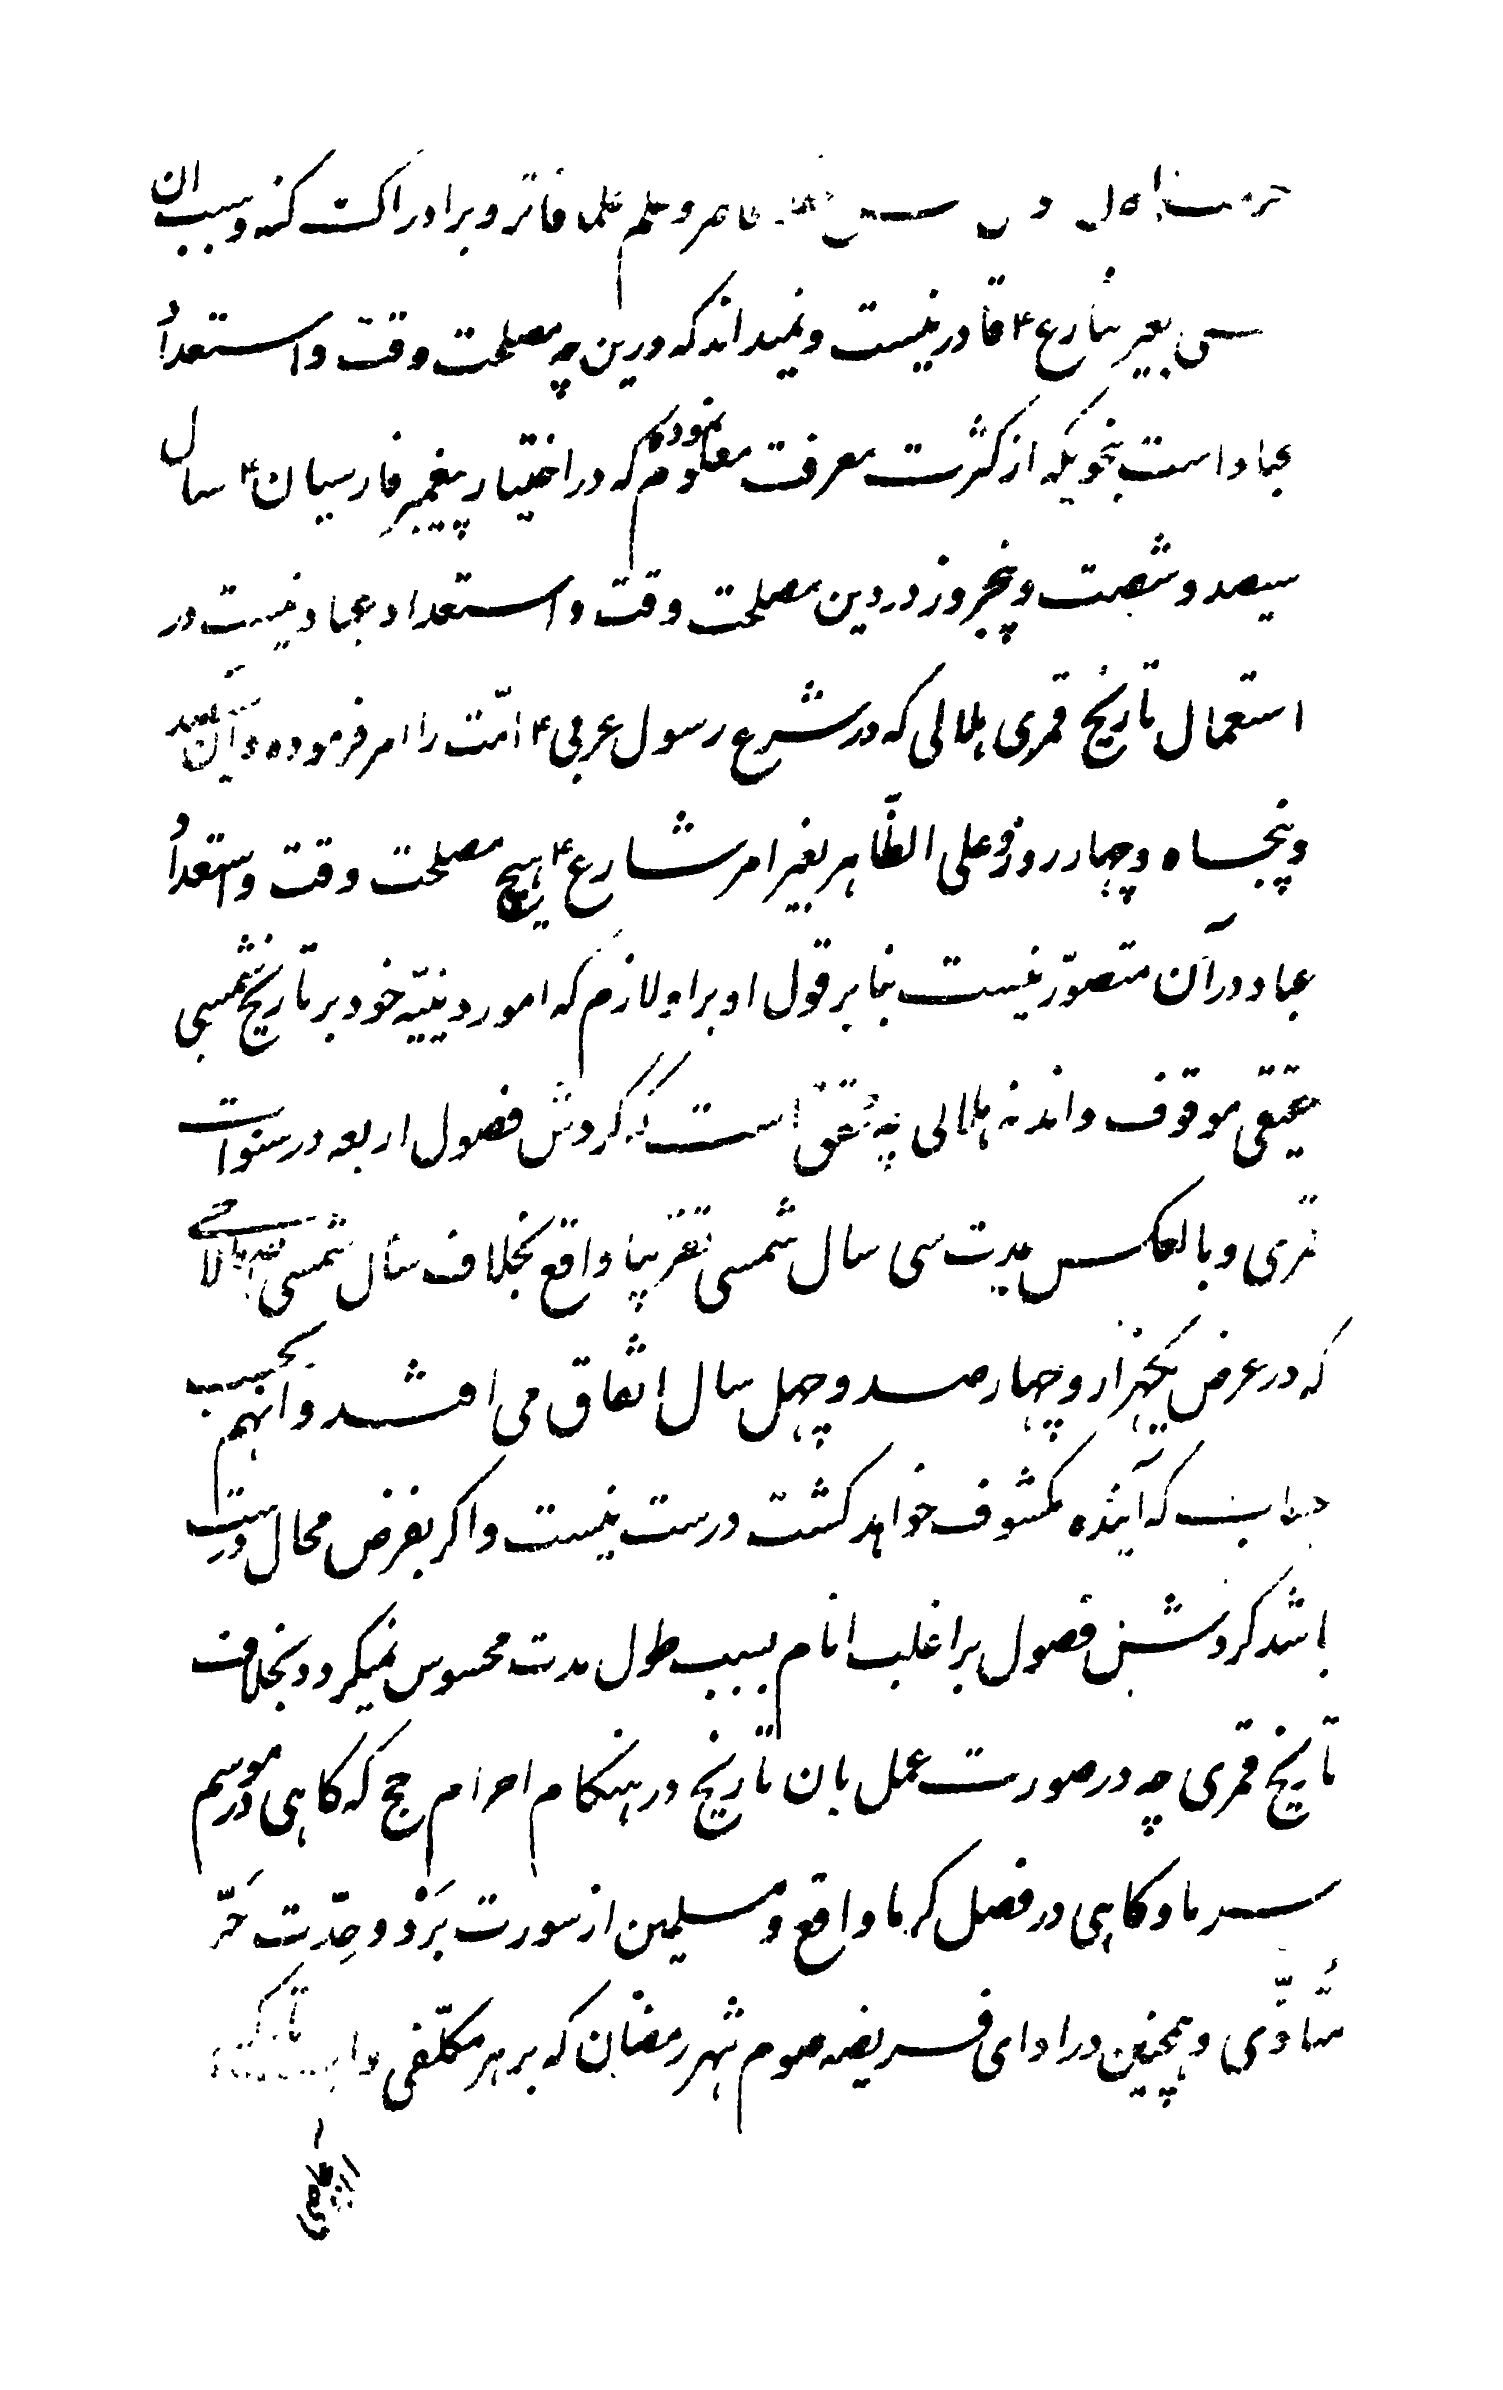 و علم علما فاتر و برادراکت کنه و سبب ان
بغیر شارع ۴ قادر نیست و نمیداند که درین چه مصلحت وقت و استعداد
عباد است بنحویکه از کثرت معرفت معلوم نموده ام که در اختیار پیغمبر فارسیان ۴ سال
سیصد و شصت و پنجروز در دین مصلحت وقت و استعداد عباد نیست در
استعمال تاریخ قمری هلالی که در شرع رسول عربی ۴ امّت را امر فرموده و آن سیصد
و پنجاه و چهار روز و علی الظّاهر بغیر امر شارع ۴ هیچ مصلحت وقت و استعداد
عباد در آن متصوّر نیست بنا بر قول او براو لازم که امور دینیّه خود بر تاریخ شمسی
حقیقی موقوف داند نه هلالی چه محقق است که کردش فصول اربعه در سنوات
قمری و بالعکس مدت سی سال شمسی تقریبا واقع بخلاف سال شمسی
که در عرض یکهزار و چهار صد و چهل سال اتفاق می افتد و انهم بحسب
که آینده مکشوف خواهد کشت درست نیست و اکر بفرض محال درست
باشد کردش فصول بر اغلب انام بسبب طول مدت محسوس نمیکردد بخلاف
تاریخ قمری چه در صورت عمل بان تاریخ در هنکام احرام حج که کاهی در موسم
سرما و کاهی در فصل کرما واقع و مسلمین از سورت بَرْد و حِدّت حَرّ
متأذّی و همچنین در ادای فریضه صوم شهر رمضان که بر هر مکلّفی